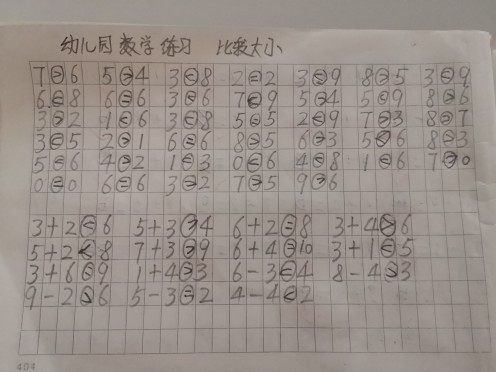 幼儿园数学练习 比较大小
7>6 5>4 3<8 2=2 3<9 8>5 3<9
6<8 6=6 3<6 7<9 5>4 5<9 8>6
3>2 1<6 3<8 5=5 2<9 7>3 8>7
3<5 2>1 6=6 8>5 6>3 5<6 8>3
5<6 4>2 1<3 0<6 4<8 1<6 7>0
0=0 6=6 3>2 7>5 9>6
3+2<6 5+3>4 6+2=8 3+4>6
5+2<8 7+3>9 6+4=10 3+1<5
3+6=9 1+4>3 6-3<4 8-4>3
9-2>6 5-3=2 4-4<2
404